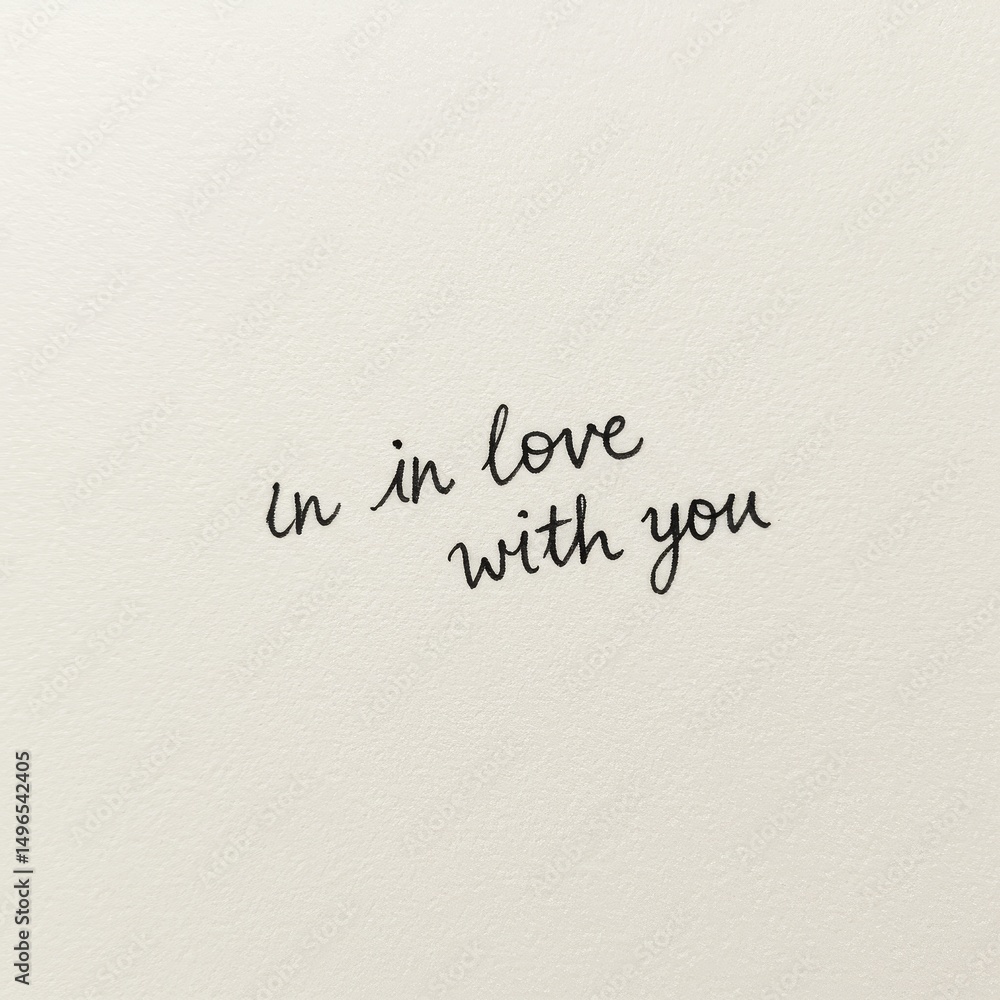 In in love
with you
Adobe Stock | #1496542405